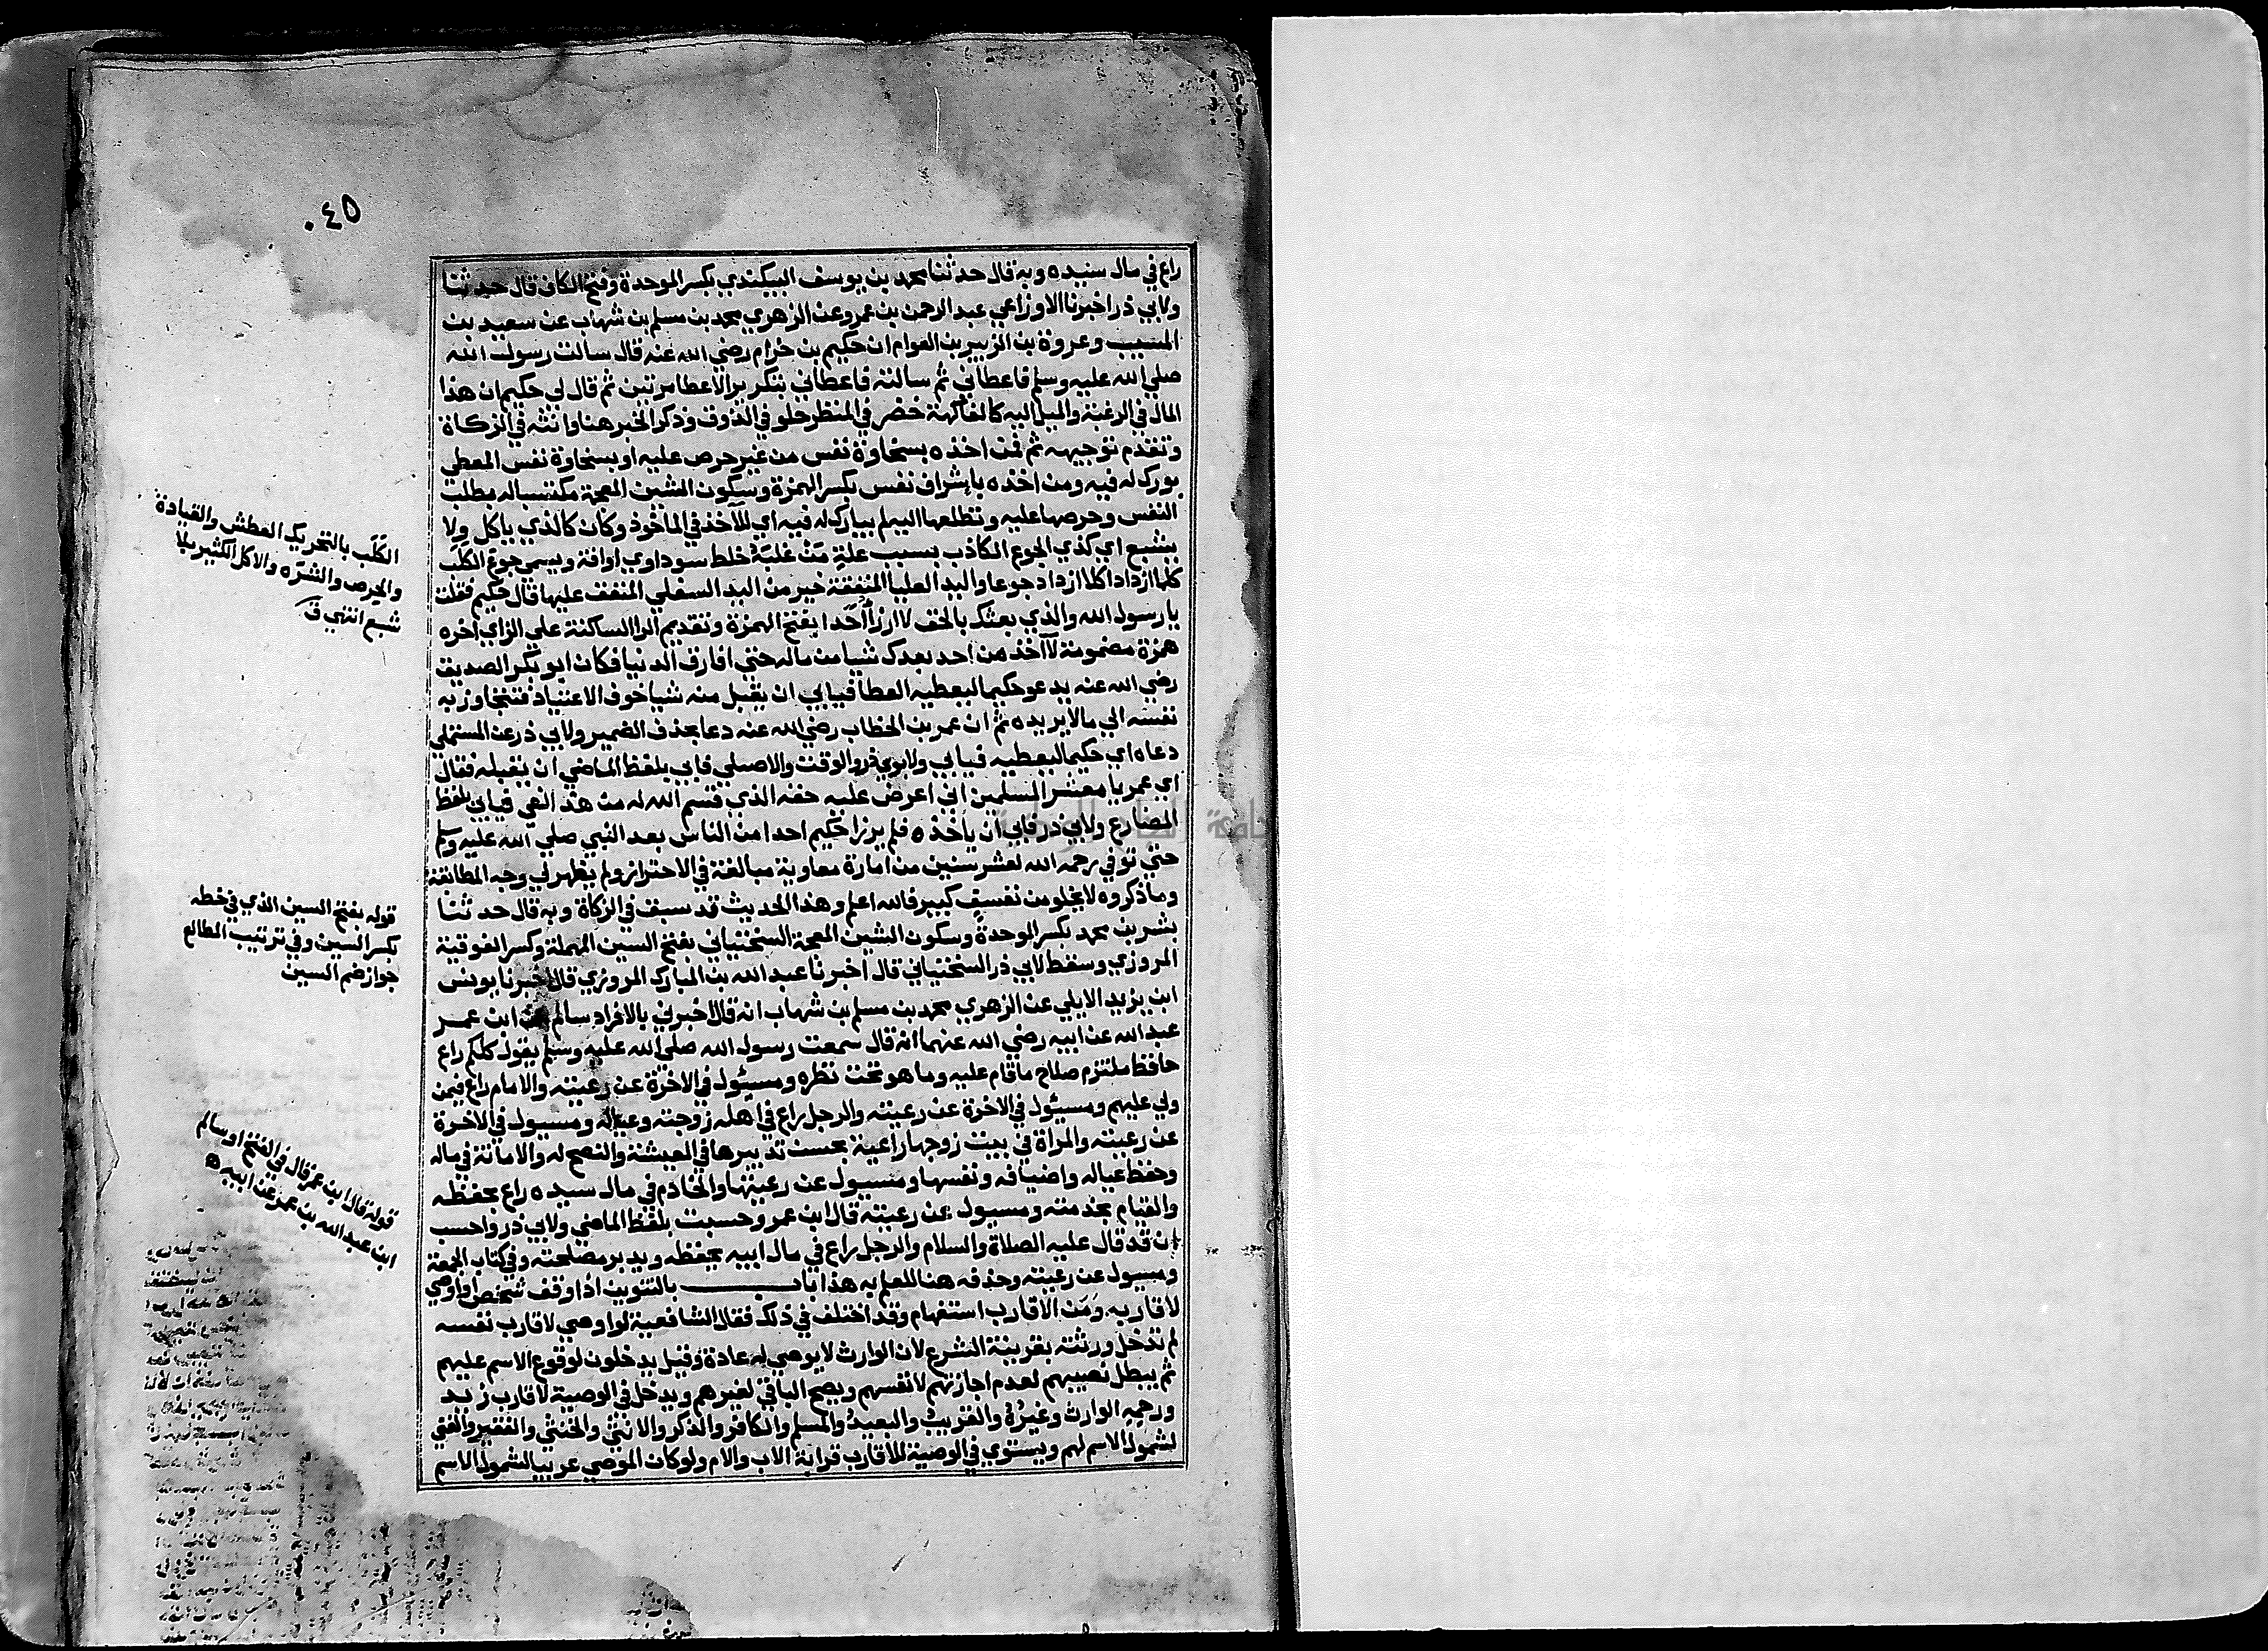 ٠٤٥
راع في مال سيده وبه قال حدثنا محمد بن يوسف البيكندي بكسر الموحدة وفتح الكاف قال حدثنا
ولابي ذر اخبرنا الاوزاعي عبد الرحمن بن عمرو عن الزهري محمد بن مسلم بن شهاب عن سعيد بن
المسيب وعروة بن الزبير بن العوام ان حكيم بن حزام رضي الله عنه قال سالت رسول الله
صلي الله عليه وسلم فاعطاني ثم سالته فاعطاني بتكرير الاعطا مرتين ثم قال لي حكيم ان هذا
المال في الرغبة والميل اليه كالفاكهة خضر في المنظر حلو في الذوق وذكر الخبر هنا وانثه في الزكاة
وتقدم توجيهه ثم فمن اخذه بسخاوة نفس من غير حرص عليه او بسخاوة نفس المعطي
بورك له فيه ومن اخذه باشراف نفس بكسر الهمزة وسكون الشين المعجمة مكتسبا له بطلب
النفس وحرصها عليه وتطلعها اليه لم يبارك له فيه اي للآخذ في الماخوذ وكان كالذي ياكل ولا
يشبع اي كذي الجوع الكاذب بسبب علة من غلبة خلط سوداوي او افة ويسمي جوع الكلب
كلما ازداد اكلا ازداد جوعا واليد العليا المنفقة خير من اليد السفلي المنفق عليها قال حكيم فقلت
يا رسول الله والذي بعثك بالحق لا ارزأ احدا بفتح الهمزة وتقديم الرا الساكنة علي الزاي اخره
همزة مضمومة لا آخذ من احد بعدك شيا من ماله حتي افارق الدنيا فكان ابو بكر الصديق
رضي الله عنه يدعو حكيما ليعطيه العطا فيابي ان يقبل منه شيا خوف الاعتياد فتتجاوز به
نفسه الي ما لا يريده ثم ان عمر بن الخطاب رضي الله عنه دعا بحذف الضمير ولابي ذر عن المستملي
دعاه اي حكيما ليعطيه فيابي ولابوي ذر والوقت والاصيلي فابي بلفظ الماضي ان يقبله فقال
اي عمر يا معشر المسلمين اني اعرض عليه حقه الذي قسم الله له من هذ الفي فيابي بلفظ
المضارع ولابي ذر فابي ان ياخذه فلم يرزا حكيم احدا من الناس بعد النبي صلي الله عليه وسلم
حتي توفي رحمه الله لعشر سنين من امارة معاوية مبالغة في الاحتراز ولم يظهر لي وجه المطابقة
وما ذكروه لا يخلو من تعسف كبير فالله اعلم وهذا الحديث قد سبق في الزكاة وبه قال حدثنا
بشر بن محمد بكسر الموحدة وسكون الشين المعجمة السختياني بفتح السين المهملة وكسر الفوقية
المروزي وسقط لابي ذر السختياني قال اخبرنا عبد الله بن المبارك المروزي قال اخبرنا يونس
ابن يزيد الايلي عن الزهري محمد بن مسلم بن شهاب انه قال اخبرني بالافراد سالم عن ابن عمر
عبد الله عن ابيه رضي الله عنهما انه قال سمعت رسول الله صلي الله عليه وسلم يقول كلكم راع
حافظ ملتزم صلاح ما قام عليه وما هو تحت نظره ومسيول في الاخرة عن رعيته والامام راع فيمن
ولي عليهم ومسيول في الاخرة عن رعيته والرجل راع في اهله زوجته وعياله ومسيول في الاخرة
عن رعيته والمراة في بيت زوجها راعية بحسن تدبيرها في المعيشة والنصح له والامانة في ماله
وحفظ عياله واضيافه ونفسها ومسيول عن رعيتها والخادم في مال سيده راع بحفظه
والقيام بخدمته ومسيول عن رعيته قال ابن عمر وحسبت بلفظ الماضي ولابي ذر واحسب
ان قد قال عليه الصلاة والسلام والرجل راع في مال ابيه يحفظه ويدبر مصلحته وفي كتاب الجمعة
ومسيول عن رعيته وحذفه هنا للعلم به هذا باب بالتنوين اذا وقف شخص او اوصي
لاقاربه ومن الاقارب استفهام وقد اختلف في ذلك فقال الشافعية لو اوصي لاقارب نفسه
لم تدخل ورثته بقرينة الشرع لان الوارث لا يوصي له عادة وقيل يدخلون لوقوع الاسم عليهم
ثم يبطل نصيبهم لعدم اجازتهم لانفسهم ويصح الباقي لغيرهم ويدخل في الوصية لاقارب زيد
ورحمه الوارث وغيره والقريب والبعيد والمسلم والكافر والذكر والانثي والخنثي والفقير والغني
لشمول الاسم لهم ويستوي في الوصية للاقارب قرابة الاب والام ولو كان الموصي عربيا لشمول الاسم
الكَلَب بالتحريك العطش والقيادة
والحرص والشره والاكل الكثير بلا
شبع انتهي ق
قوله بفتح السين الذي في خطه
بكسر السين وفي ترتيب المطالع
جواز ضم السين
قوله قال ابن عمر قال في الفتح او سالم
ابن عبد الله بن عمر عن ابيه ه